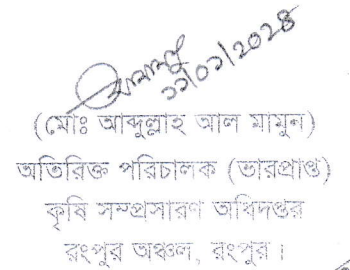 ১১/০১/2024
(মোঃ আব্দুল্লাহ আল মামুন)
অতিরিক্ত পরিচালক (ভারপ্রাপ্ত)
কৃষি সম্প্রসারণ অধিদপ্তর
রংপুর অঞ্চল, রংপুর।